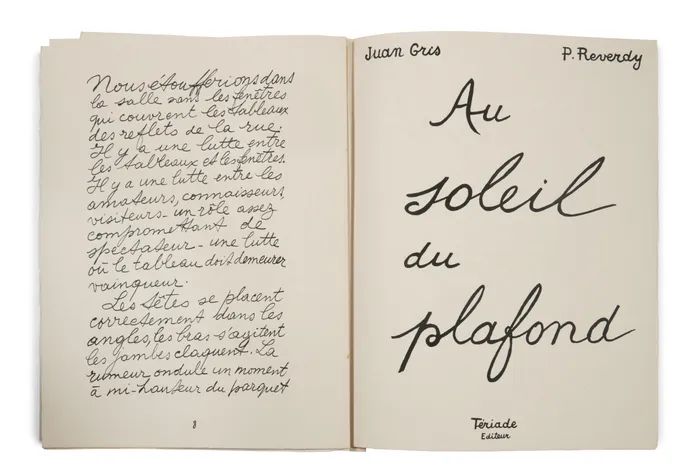 Nous étoufferions dans
la salle sans les fenêtres
qui couvrent les tableaux
des reflets de la rue.
Il y a une lutte entre
les tableaux et les fenêtres.
Il y a une lutte entre les
amateurs, connaisseurs,
visiteurs - un rôle assez
compromettant de
spectateur - une lutte
où le tableau doit demeurer
vainqueur.
Les têtes se placent
correctement dans les
angles, les bras s'agitent
les jambes claquent. La
rumeur ondule un moment
à mi-hauteur du parquet
8
Juan Gris
P. Reverdy
Au
soleil
du
plafond
Tériade
Editeur